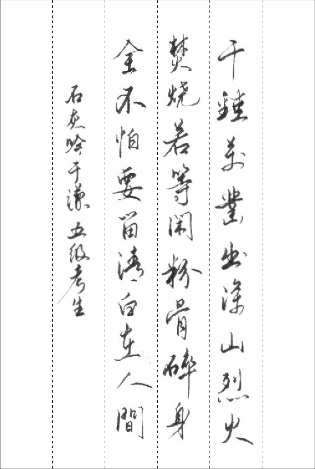 千錘萬鑿出深山烈火
焚烧若等闲粉骨碎身
全不怕要留清白在人間
石灰吟于謙五级考生